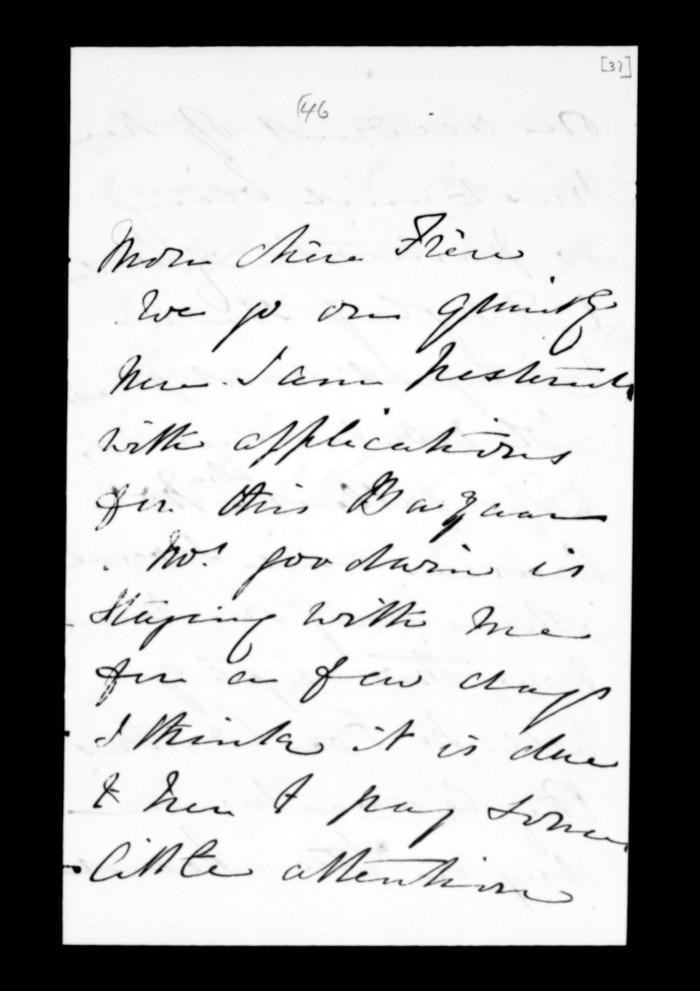 [37]
(46
Mon chère Frère
We go on quietly
here. I am pestered
with applications
for this Bazaar
. Mrs goodwin is
staying with me
for a few days
I think it is due
to her to pay some
little attention